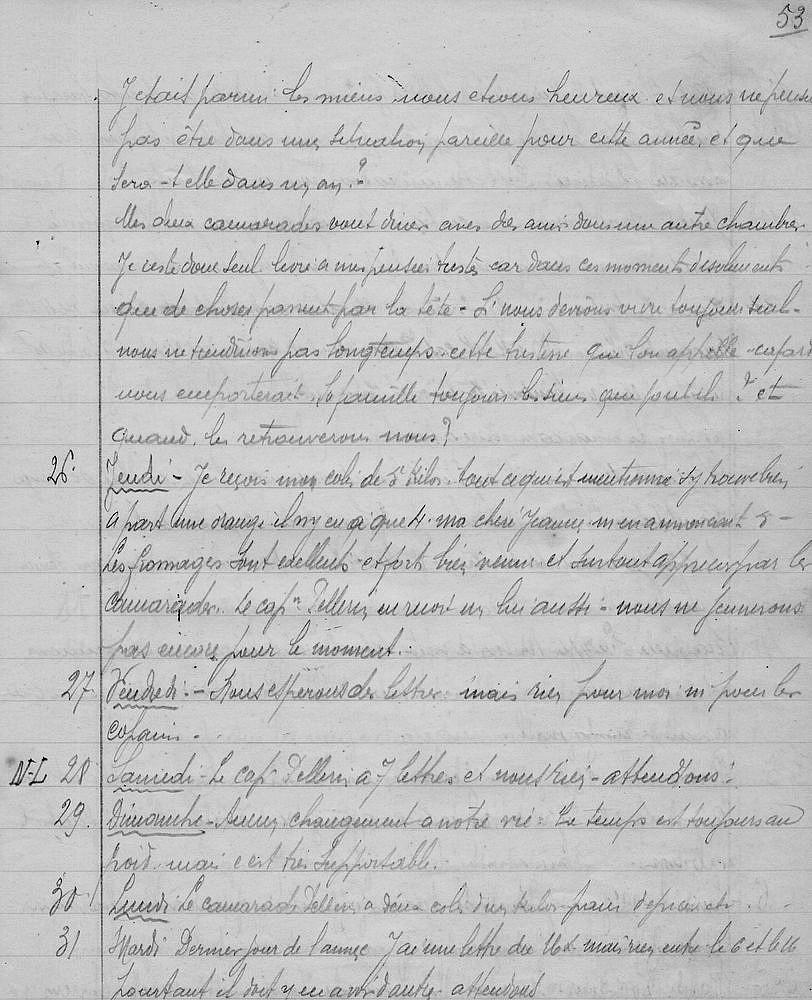 53
J'etait parmi les miens nous etions heureux et nous ne pensions
pas être dans une situation pareille pour cette année, et que
sera-t-elle dans un an ?
Mes deux camarades vont diner avec des amis dans une autre chambre.
Je reste donc seul livré a mes pensées tristes car dans ces moments d'isolements
que de choses passent par la tête - Si nous devions vivre toujours seul -
nous ne tiendrions pas longtemps cette tristesse que l'on appelle cafard
nous emporterait. la famille toujours les siens que font ils ? et
quand les retrouverons nous ?
26. Jeudi - Je reçois mon colis de 5 Kilos. tout ce qui est mentionné s'y trouve bien
a part une orange il n'y en a que 4. ma chere Jeanne m'en annoncant 5 -
Les fromages sont exellents et fort bien venu et surtout apprecies par les
camarades. Le cap^n Pellerin en recoi un lui aussi - nous ne jeunerons
pas encore pour le moment.
27. Vendredi - Nous esperons des lettres mais rien pour moi ni pour les
copains.
N-L 28 Samedi - Le cap^n Pellerin a 7 lettres et nous rien - attendons.
29. Dimanche - Aucun changement a notre vie. Le temps est toujours au
froid mais c'est très supportable.
30 Lundi Le camarade Pellerin a deux colis d'un kilos
31 Mardi Dernier jour de l'année J'ai une lettre du 16 mais rien entre le 6 et le 16
pourtant il doit y en avoir d'autres attendons